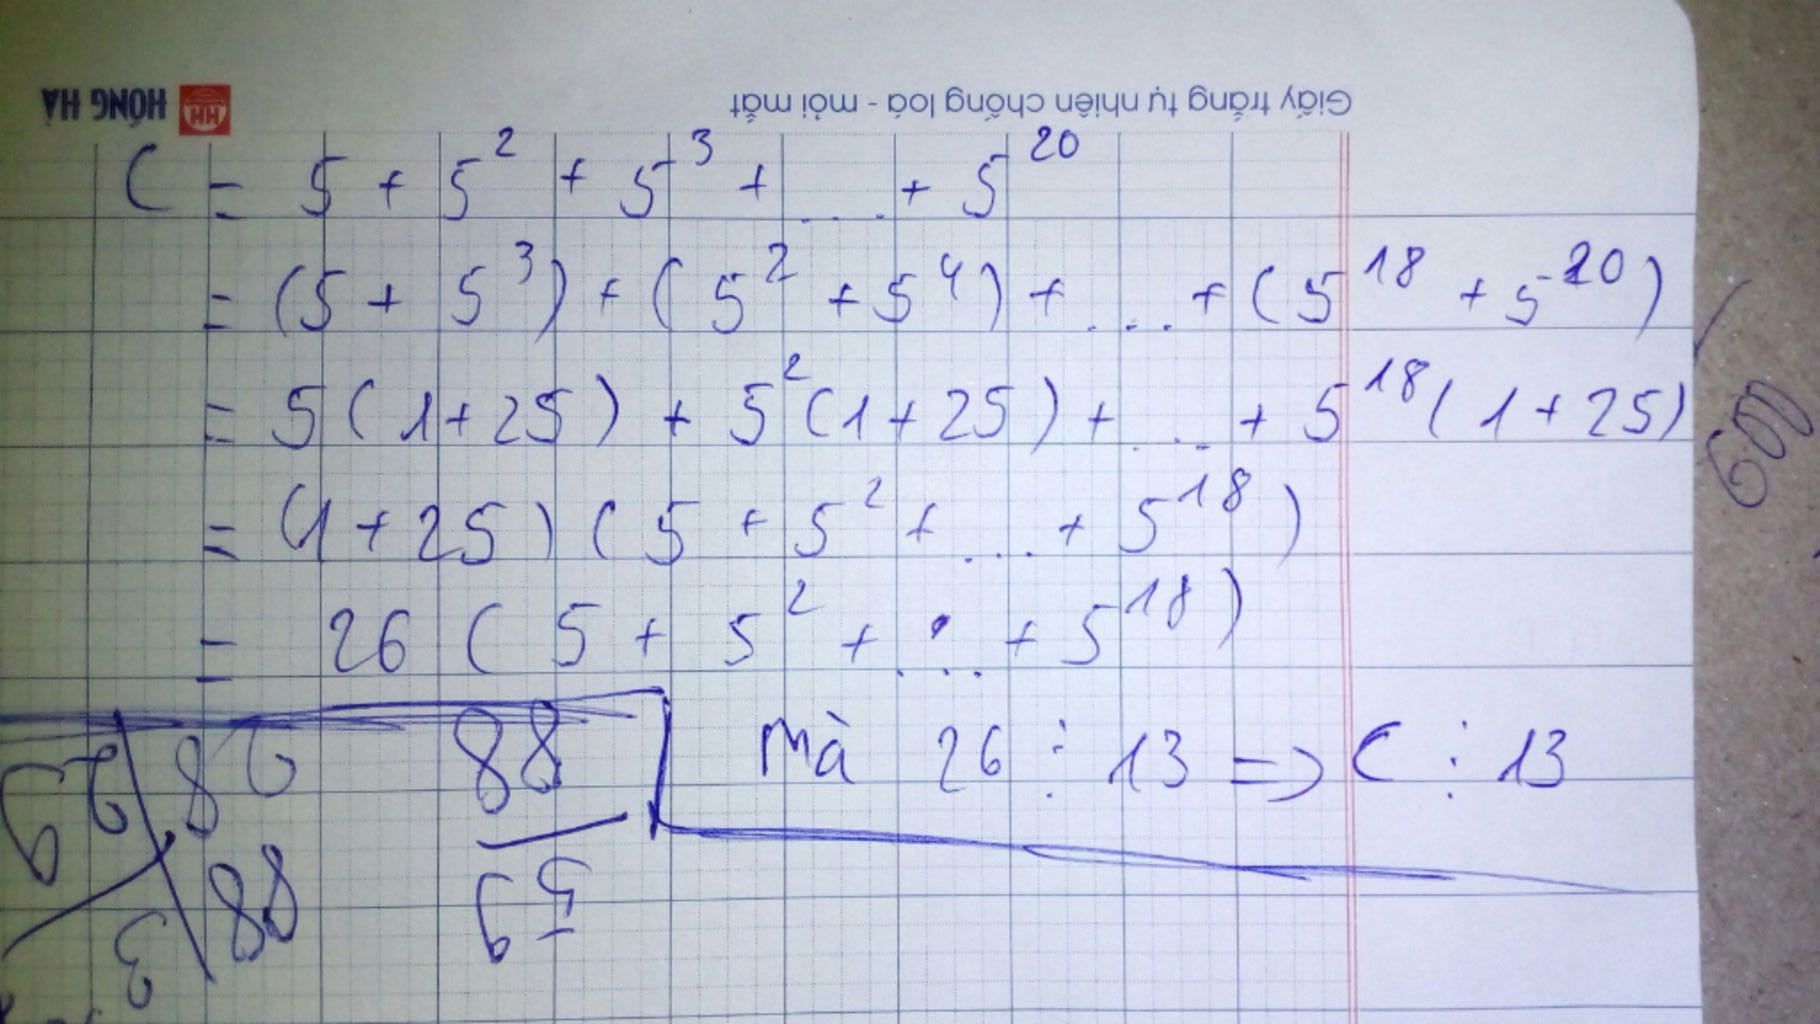 HỒNG HÀ
Giấy trắng tự nhiên chống loá - mỏi mắt
C = 5 + 5² + 5³ + .... + 5²⁰
= (5 + 5³) + (5² + 5⁴) + .... + (5¹⁸ + 5²⁰)
= 5(1+25) + 5²(1+25) + .... + 5¹⁸(1+25)
= (1+25)(5 + 5² + .... + 5¹⁸)
= 26(5 + 5² + .... + 5¹⁸)
Mà 26 ⋮ 13 => C ⋮ 13
88